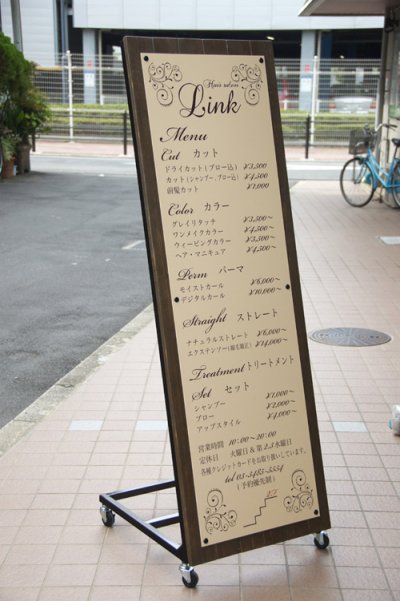 Hair salon
Link
Menu
Cut カット
ドライカット(ブロー込) ¥3,500
カット(シャンプー、ブロー込) ¥4,500
前髪カット ¥1,000
Color カラー
グレイリタッチ ¥3,500~
ワンメイクカラー ¥4,500~
ウィービングカラー ¥5,500~
ヘア・マニキュア ¥4,500~
Perm パーマ
モイストカール ¥6,000~
デジタルカール ¥10,000~
Straight ストレート
ナチュラルストレート ¥6,000~
エクステンソー(縮毛矯正) ¥14,000~
Treatment トリートメント
Set セット
シャンプー ¥1,000~
ブロー ¥2,000~
アップスタイル ¥4,000~
営業時間 10:00~20:00
定休日 火曜日 & 第2.3水曜日
各種クレジットカードをお取り扱いしています。
tel 03-5485-5554
(予約優先制)
2F